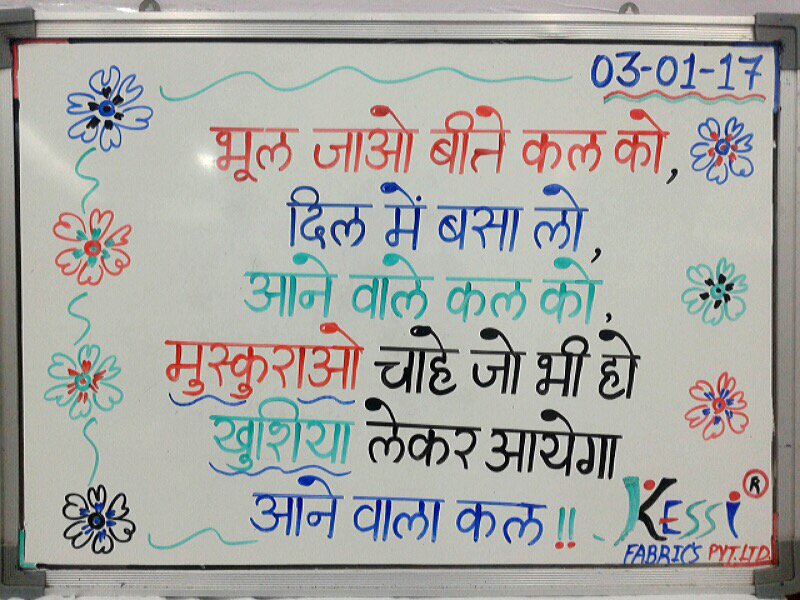 03-01-17
भूल जाओ बीते कल को,
दिल में बसा लो,
आने वाले कल को,
मुस्कुराओ चाहे जो भी हो
खुशिया लेकर आयेगा
आने वाला कल !!
KESSI ®
FABRICS PVT.LTD.